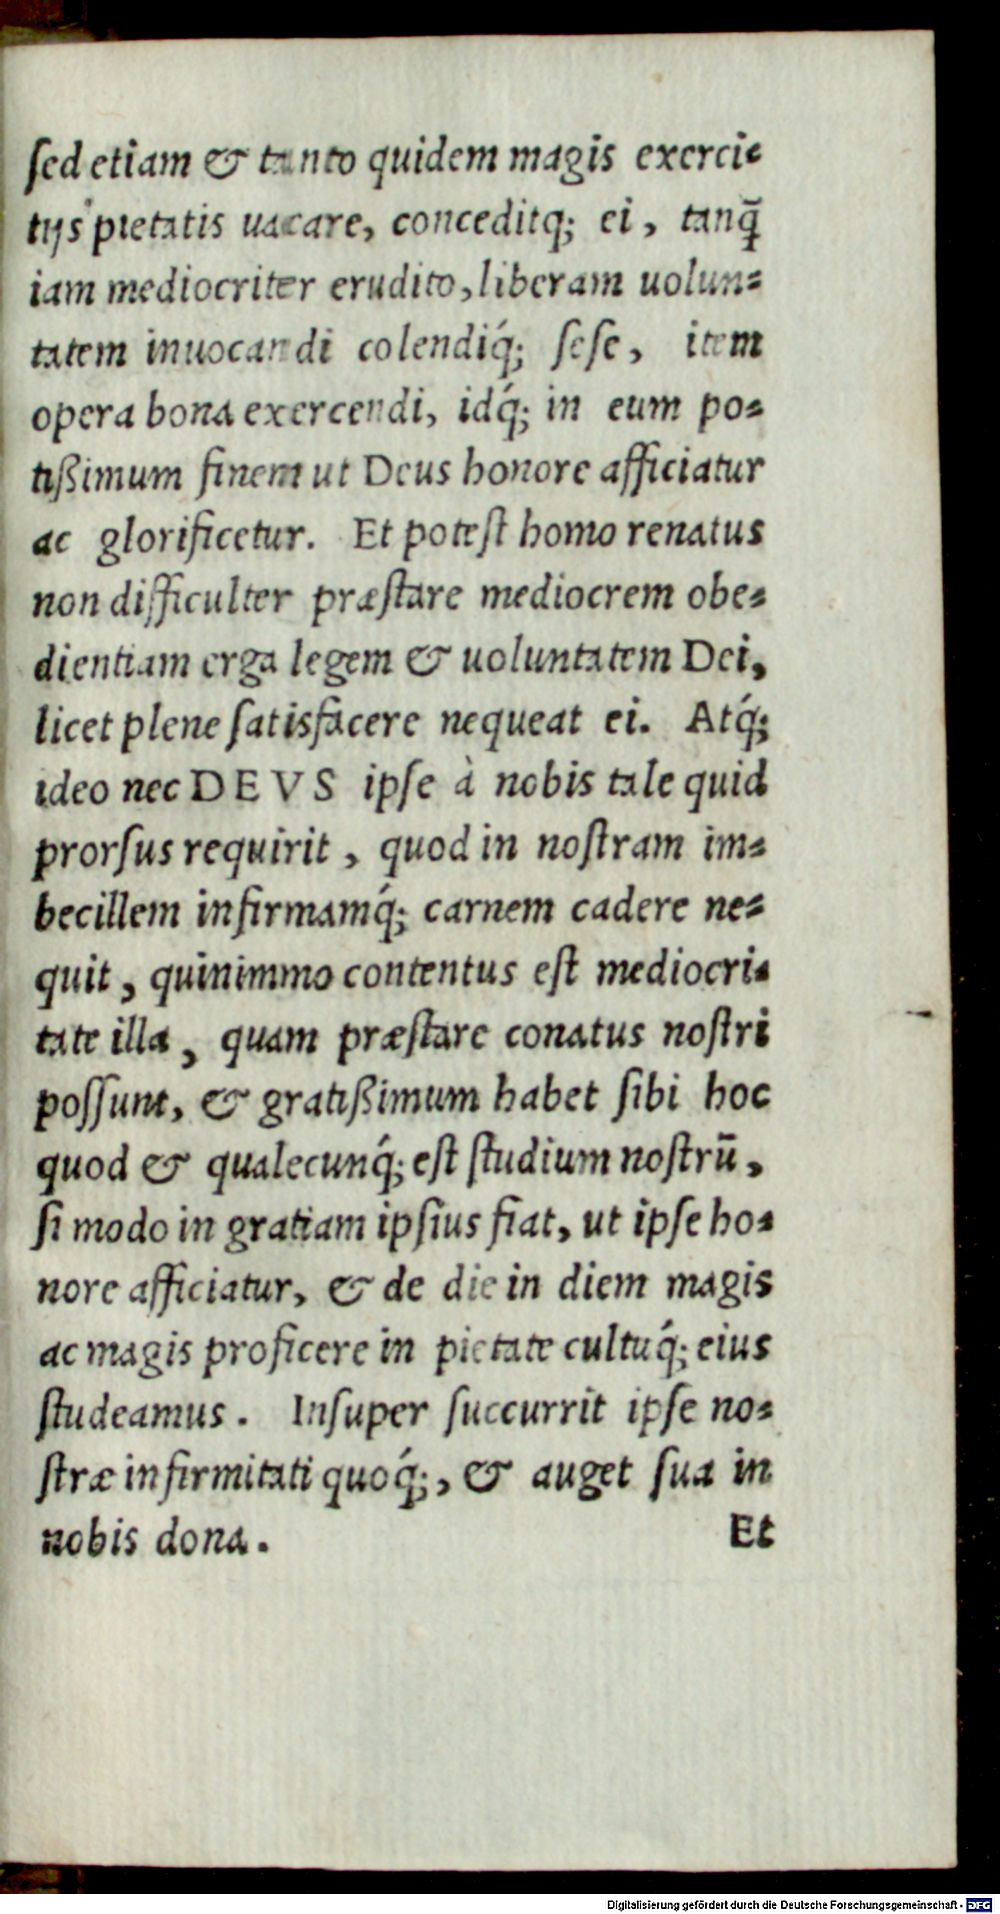 ſed etiam & tanto quidem magis exerci⸗
tijs pietatis uacare, conceditq; ei, tanq̃
iam mediocriter erudito, liberam uolun⸗
tatem inuocandi colendiq́; ſeſe, item
opera bona exercendi, idq́; in eum po⸗
tißimum finem ut Deus honore afficiatur
ac glorificetur. Et poteſt homo renatus
non difficulter præſtare mediocrem obe⸗
dientiam erga legem & uoluntatem Dei,
licet plene ſatisfacere nequeat ei. Atq́;
ideo nec DEVS ipſe à nobis tale quid
prorſus requirit, quod in noſtram im⸗
becillem infirmamq́; carnem cadere ne⸗
quit, quinimmo contentus eſt mediocri⸗
tate illa, quam præſtare conatus noſtri
poſſunt, & gratißimum habet ſibi hoc
quod & qualecunq́; eſt ſtudium noſtrū,
ſi modo in gratiam ipſius fiat, ut ipſe ho⸗
nore afficiatur, & de die in diem magis
ac magis proficere in pietate cultuq́; eius
ſtudeamus. Inſuper ſuccurrit ipſe no⸗
ſtræ infirmitati quoq́;, & auget ſua in
nobis dona. Et
Digitalisierung gefördert durch die Deutsche Forschungsgemeinschaft - DFG